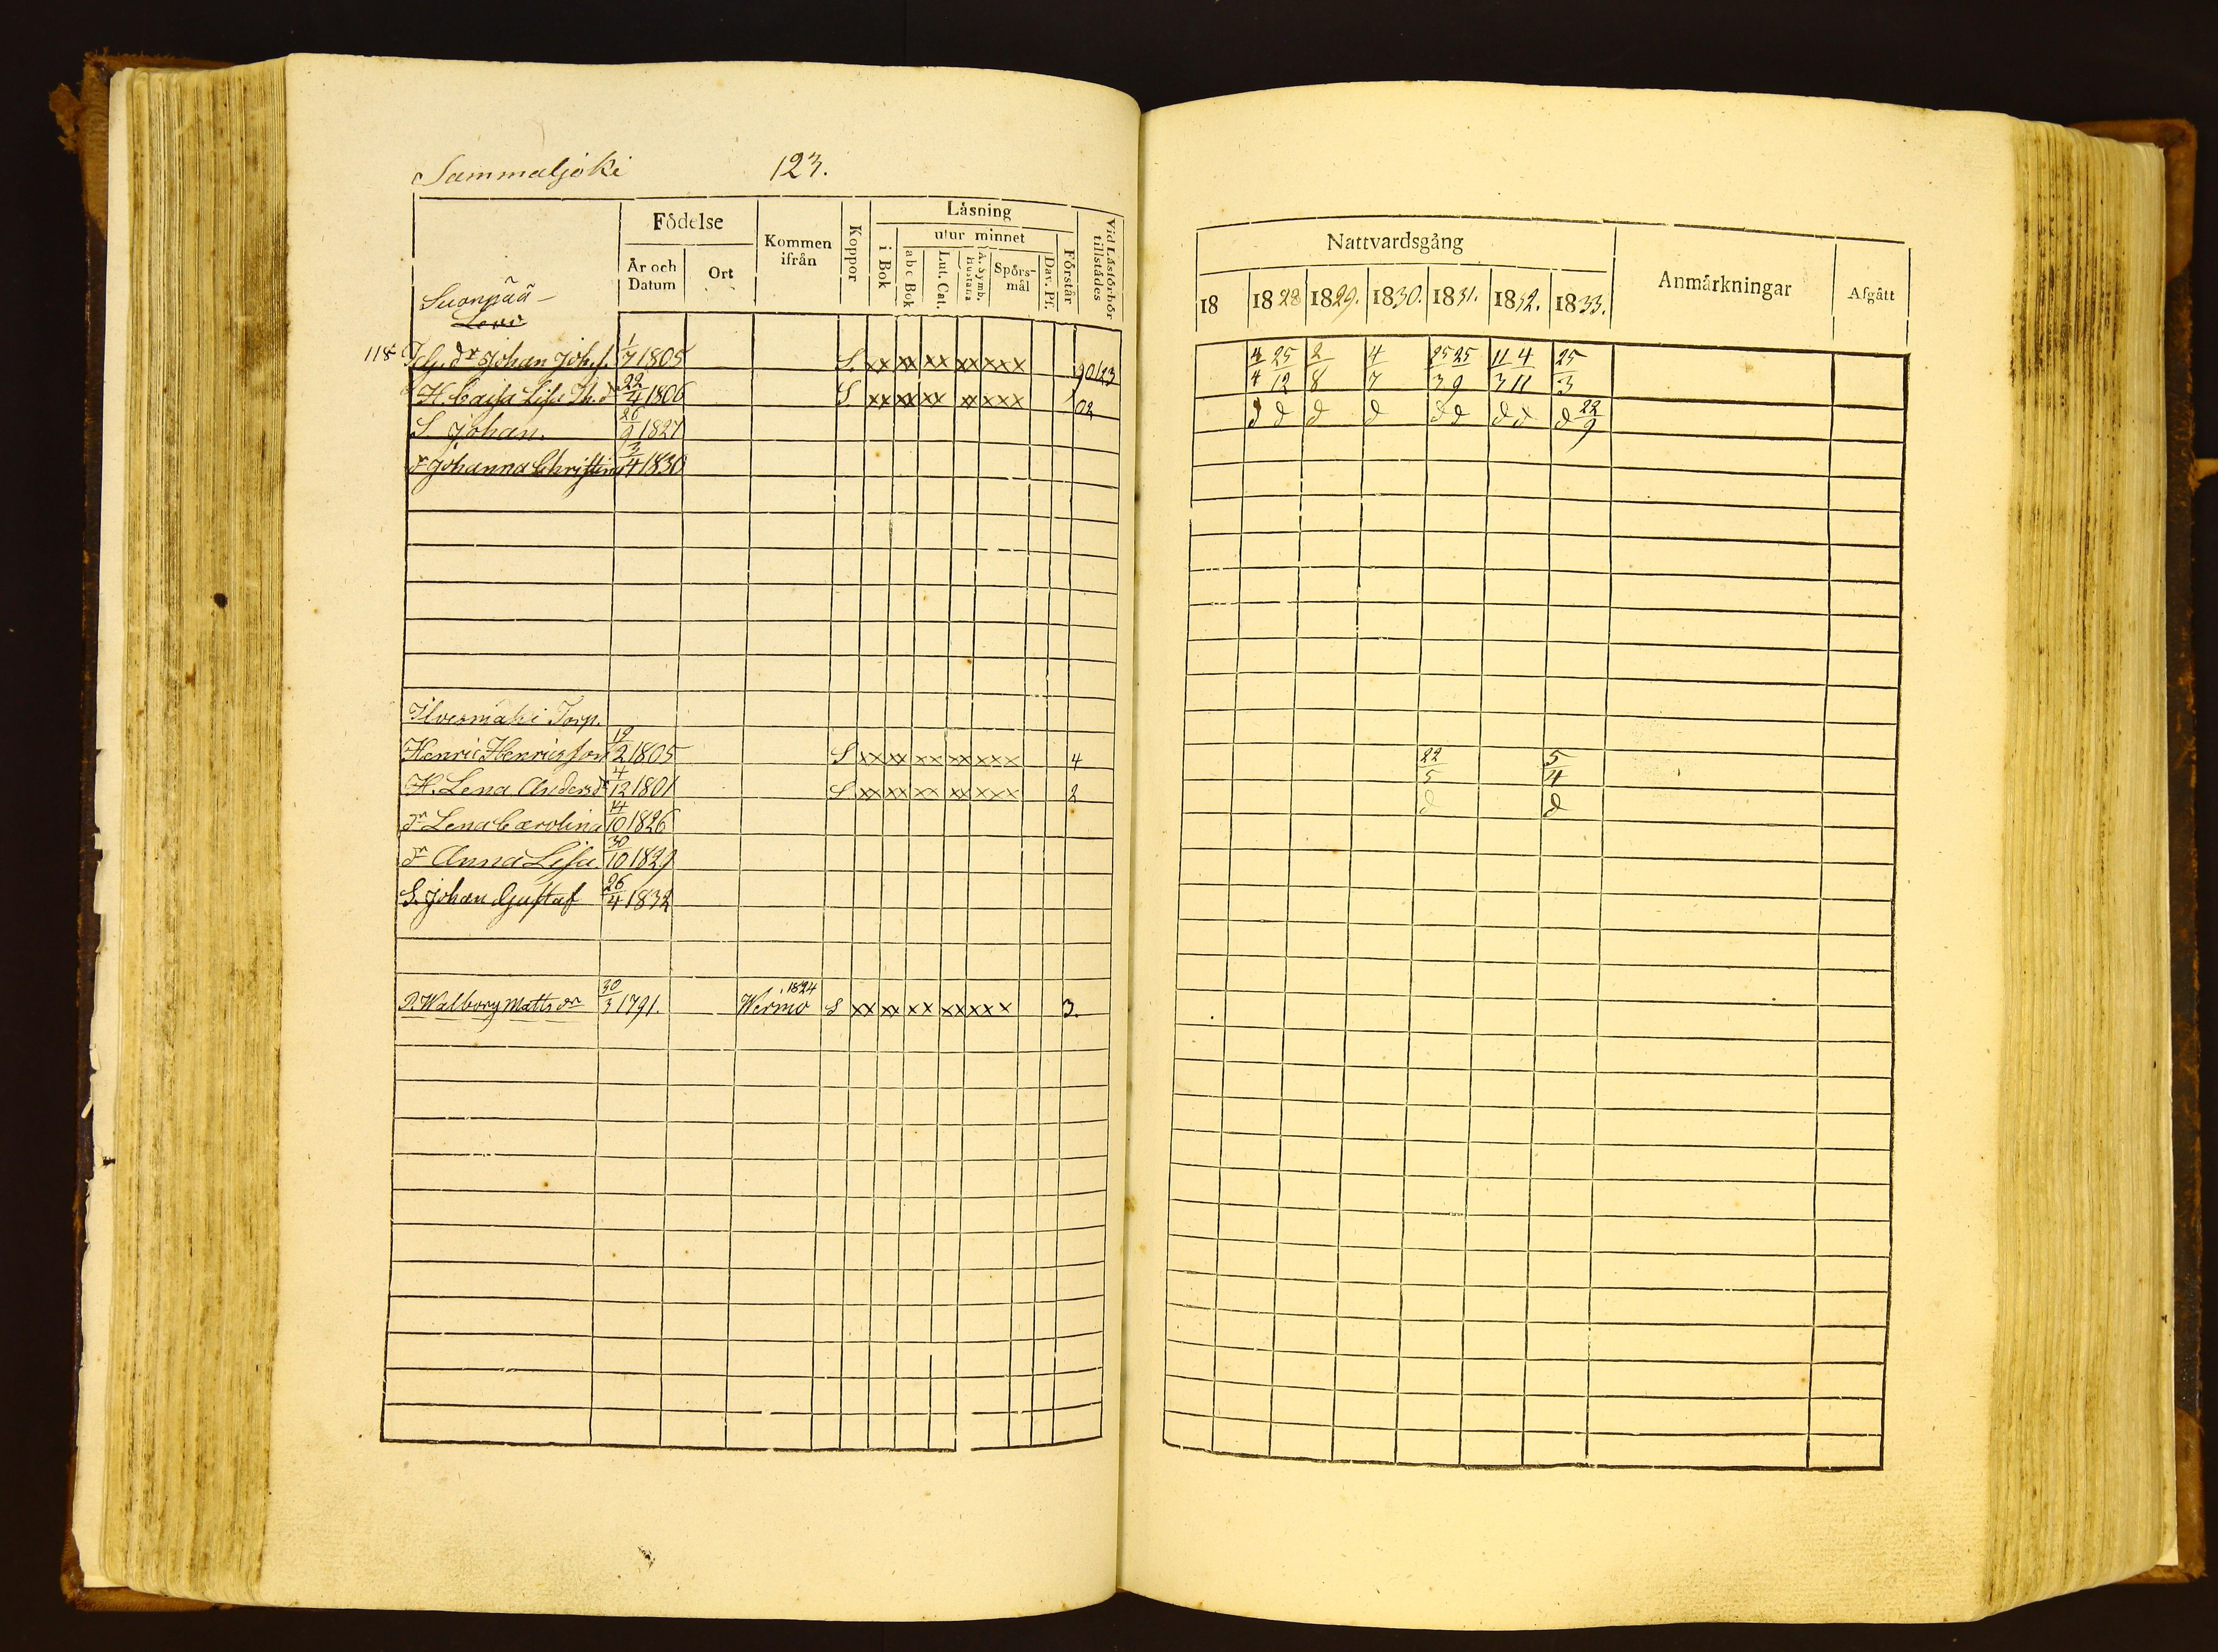 Sammaljoki 123.
Födelse Kommen ifrån Koppor Läsning Vid Läsförhör tillstädes
År och Datum Ort i Bok utur minnet Förstår
abc Bok Lut. Cat. A. Symb. Hustafla Spörs-mål Dav. Pf.
Suonpää
118 Johan Joh.s. 1/7 1805 S. xx xx xx xx xxx
H. Cajsa Lisa 22/4 1806 S xx xx xx xx xxx 02
S. Johan. 26/9 1827
dr Johanna Christina 3/4 1830
Ilvesmäki Torp.
Henric Henricsson 19/2 1805 S xx xx xx xx xxx 4
H. Lena Andersdr 4/12 1801 S xx xx xx xx xxx 2
dr Lena Carolina 14/10 1826
dr Anna Lisa 30/10 1829
S. Johan Gustaf 26/4 1832
P. Walborg Matts dr 30/3 1791. Wermo 1824 S xx xx xx xx xxx 3.
Nattvardsgång Anmärkningar Afgått
18 1828 1829. 1830. 1831. 1832. 1833.
4/4 25/12 2/8 4/7 25/3 25/9 11/3 4/11 25/3
d d d d d d d d d 22/9
22/5 5/4
d d